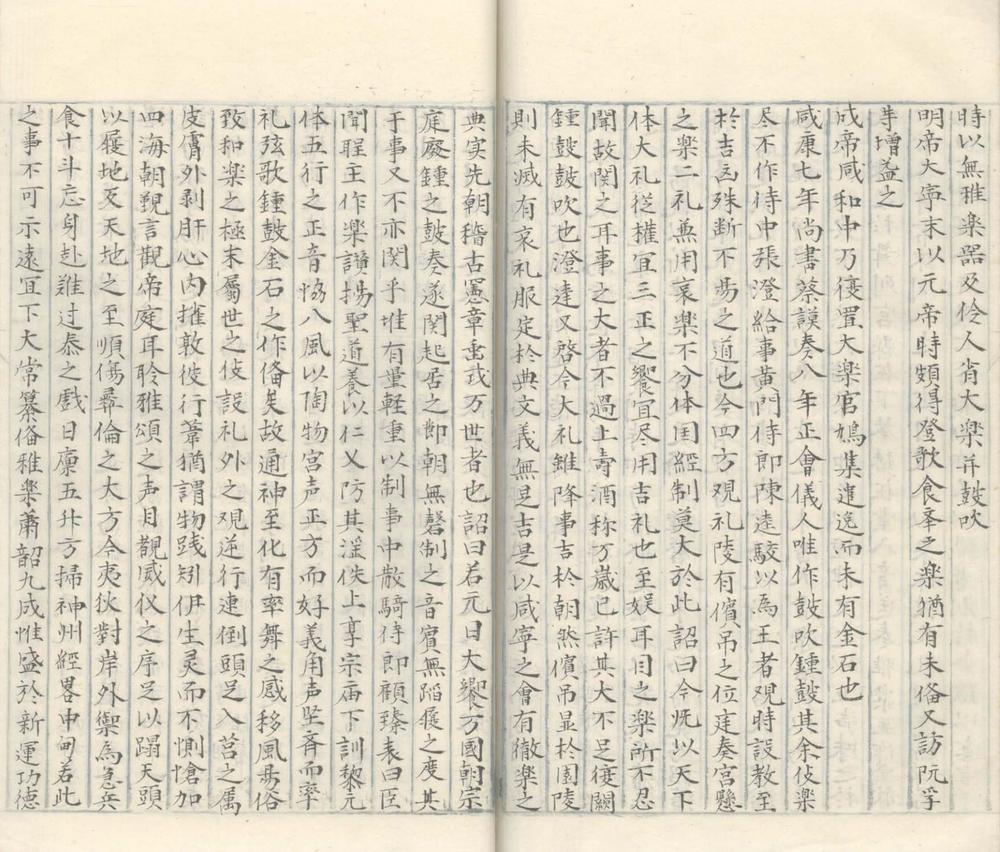 時以無雅楽器及伶人省大楽并鼓吹
明帝大寧末以元帝時頗得登歌食拳之楽猶有未俻又訪阮孚
䓁增益之
成帝咸和中乃復置大楽官鳩集遺逸而未有金石也
咸康七年尚書蔡謨奏八年正會儀人唯作鼓吹鍾鼓其余伎楽
尽不作侍中張澄給事黄門侍郎陳逵駮以為王者覌時設教至
於吉凶殊断不昜之道也今四方覌礼陵有儐吊之位㢓奏宮懸
之楽二礼兼用哀楽不分体囯經制莫大於此詔曰今旣以天下
体大礼従權冝三正之饗冝尽用吉礼也至娯耳目之楽所不忍
聞故関之耳事之大者不過上壽酒称万歳已許其大不足復闕
鍾鼓鼓吹也澄逵又啓今大礼雖降事吉於朝然儐吊显於園陵
則未滅有哀礼服定於典文義無足吉是以咸寧之會有徹楽之
典实先朝稽古憲章垂式万世者也詔曰若元日大饗万國朝宗
庭廢鍾之鼓奏遂関起居之節朝無磬制之音賓無蹈履之度其
于事又不亦関乎堆有量軽重以制事中散騎侍郎顧臻表曰臣
聞聖主作楽讃揚聖道養以仁义防其滛佚上享宗庙下訓黎元
体五行之正音恊八風以陶物宮声正方而好義角声坚斉而率
礼弦歌鍾鼓金石之作俻矣故通神至化有率舞之感移風昜俗
致和楽之極末屬世之伎設礼外之覌逆行連倒頭足入莒之属
皮膚外剥肝心内摧敦彼行葦猶謂物践矧伊生灵而不惻愴加
四海朝覲言觀帝庭耳聆雅頌之声目覩威仪之序足以蹋天頭
以履地反天地之至順傷彞倫之大方今夷狄對岸外禦為急兵
食十斗忘身赴難过泰之戲日廪五升方掃神州經畧中甸若此
之事不可示遠宜下大常纂俻雅楽萧韶九成惟盛於新運功德